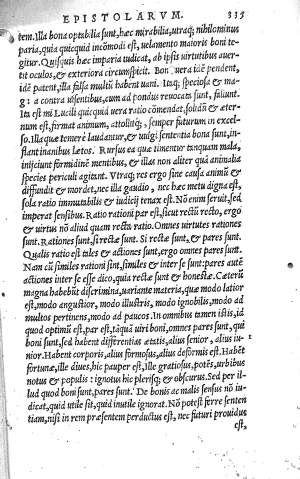 EPISTOLARVM. 335
tem. Illa bona optabilia sunt, hæc mirabilia, utraq; nihilominus
paria, quia quicquid incõmodi est, uelamento maioris boni te-
gitur. Quisquis hæc imparia iudicat, ab ipsis uirtutibus auer-
tit oculos, & exteriora circunspicit. Bona uera idẽ pendent,
idẽ patent, illa falsa multũ habent uani. Itaq; speciosa & ma-
g: a contra uisentibus, cum ad pondus reuocata sunt, fallunt.
Ita est mi Lucili quicquid uera ratio cõmendat, solidũ & æter-
num est, firmat animum, attollitq;, semper futurum in excel-
so. Illa quæ temere laudantur, & uulgi sententia bona sunt, in-
flant inanibus lætos. Rursus ea quæ timentur tanquam mala,
inijciunt formidinẽ mentibus, & illas non aliter quã animalia
species periculi agitant. Vtraq; res ergo sine causa animũ &
diffundit & mordet, nec illa gaudio, nec hæc metu digna est,
sola ratio immutabilis & iudicij tenax est. Nõ enim seruit, sed
imperat sensibus. Ratio rationi par est, sicut rectũ recto, ergo
& uirtus nõ aliud quam recta ratio. Omnes uirtutes rationes
sunt. Rationes, si rectæ sunt. Si rectæ sunt, & pares sunt.
Qualis ratio est tales & actiones sunt, ergo omnes pares sunt.
Nam cũ similes rationi sint, similes & inter se sunt: pares autẽ
actiones inter se esse dico, quia rectæ sunt & honestæ. Cæterũ
magna habebũt discrimina, uariante materia, quæ modo latior
est, modo angustior, modo illustris, modo ignobilis, modo ad
multos pertinens, modo ad paucos. In omnibus tamen istis, id
quod optimũ est, par est, tãquã uiri boni, omnes pares sunt, qui
boni sunt, sed habent differentias ætatis, alius senior, alius iu-
nior. Habent corporis, alius formosus, alius deformis est. Habẽt
fortunæ, ille diues, hic pauper est, ille gratiosus, potẽs, urbibus
notus & populis: ignotus hic plerisq; & obscurus. Sed per il-
lud quod boni sunt, pares sunt. De bonis ac malis sensus nõ iu-
dicat, quid utile sit, quid inutile ignorat. Nõ potest ferre senten
tiam, nisi in rem præsentem perductus est, nec futuri prouidus
est,